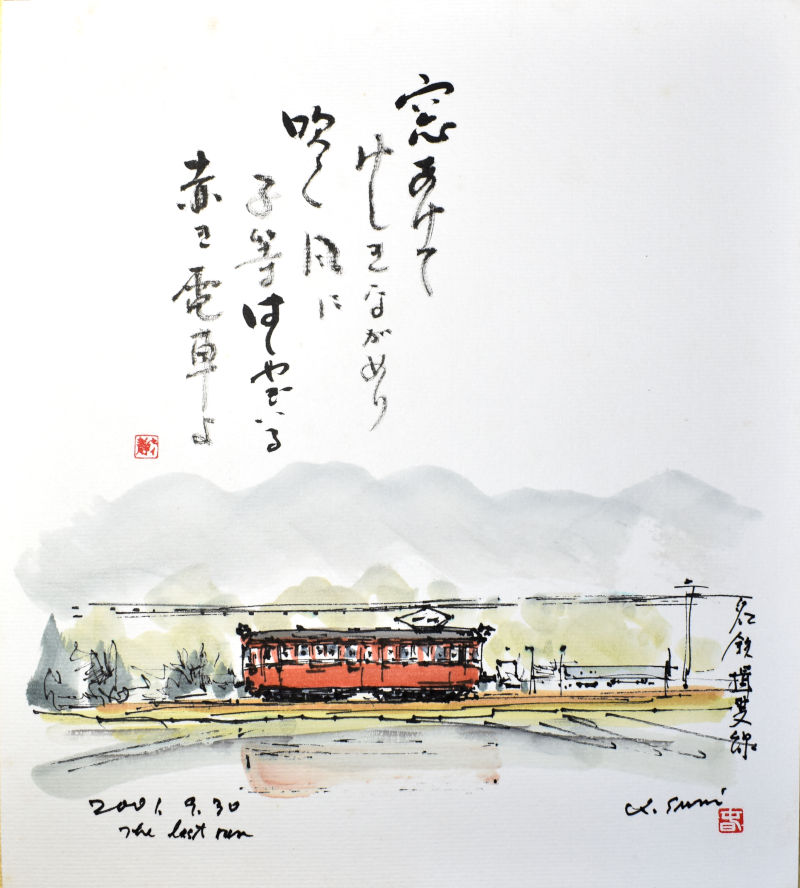 窓あけて
けしきながめり
吹く風に
子等はしゃいでいる
赤き電車よ
名鉄揖斐線
2001.9.30
The last run